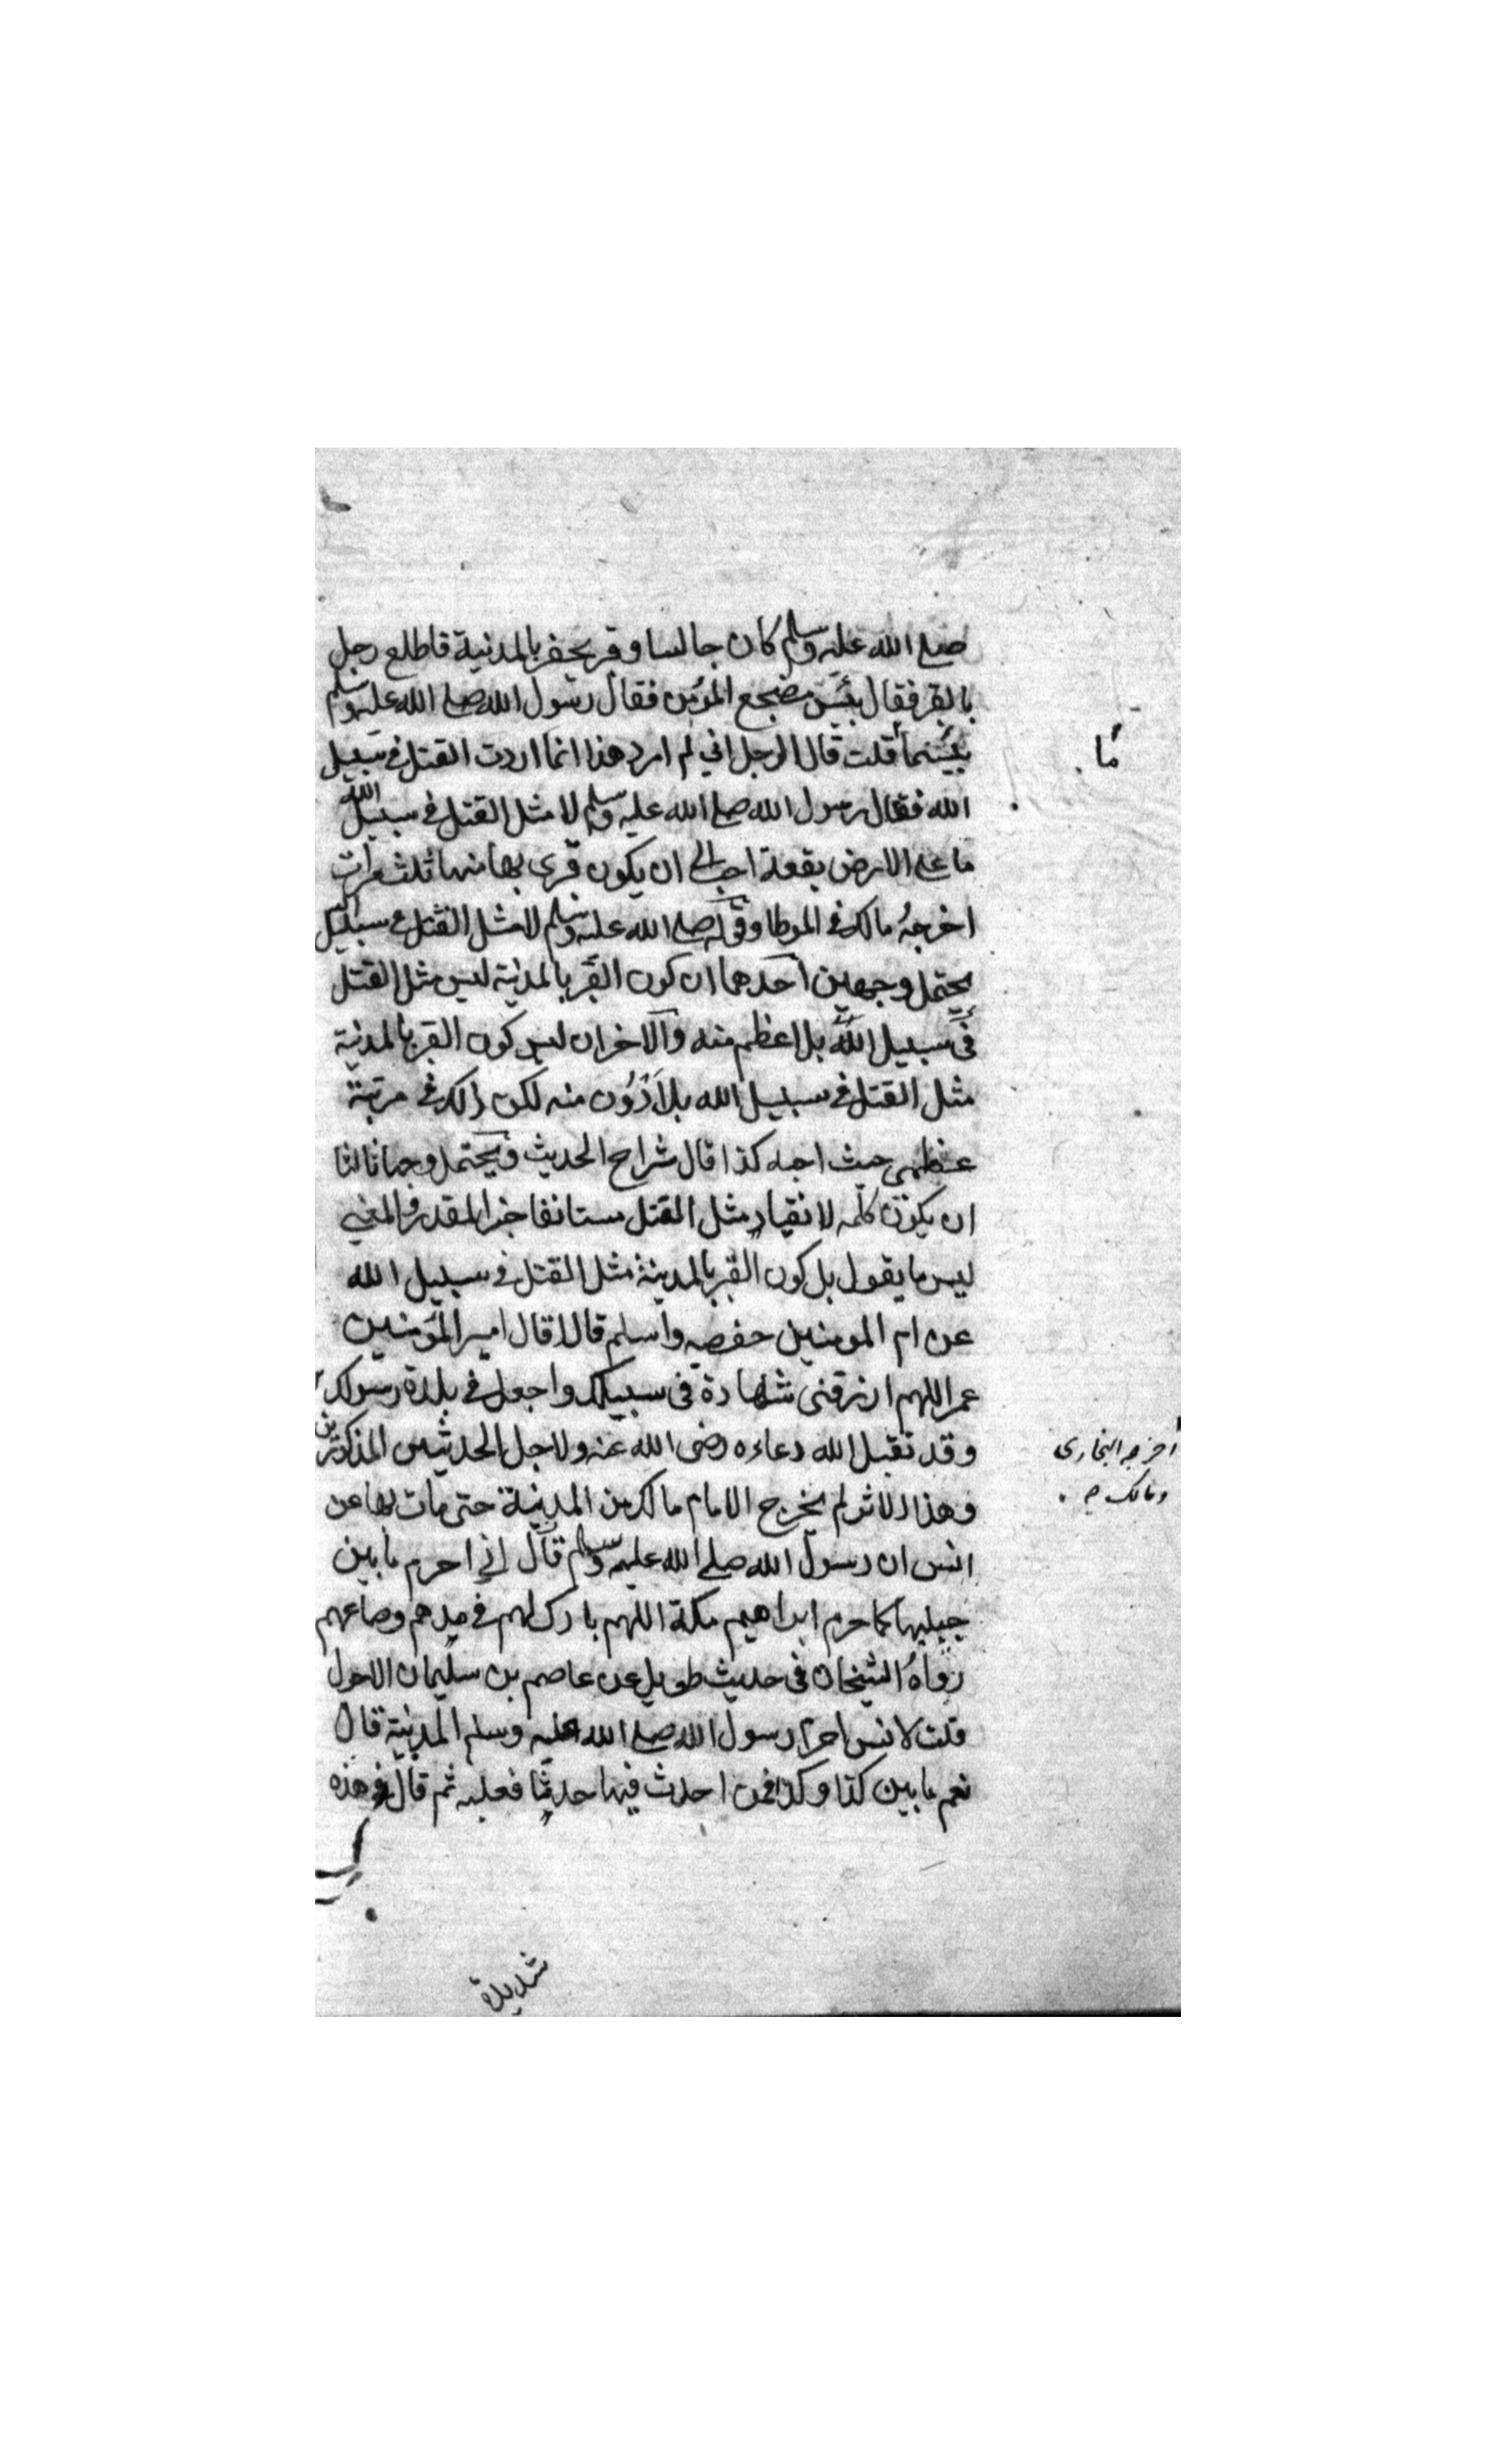 صلى الله عليه وسلم كان جالسا وقبر يحفر بالمدنية فاطلع رجل
بالقبر فقال بئس مضجع المؤمن فقال رسول الله صلى الله عليه وسلم
بئسما قلت قال الرجل اني لم ارد هذا انما اردت القتل في سبيل
ما
الله فقال رسول الله صلى الله عليه وسلم لا مثل القتل في سبيل الله
ما على الارض بقعة احب الي ان يكون قبري بها منها ثلث مرات
اخرجه مالك في الموطا وقوله صلى الله عليه وسلم لا مثل القتل في سبيل الله
يحتمل وجهين احدهما ان كون القبر بالمدينة ليس مثل القتل
في سبيل الله بل اعظم منه والاخر ان ليس كون القبر بالمدنية
مثل القتل في سبيل الله بل ادون منه لكن ذلك في مرتبة
عظمى حيث احبه كذا قال شراح الحديث ويحتمل وجها ثالثا
ان يكون كلمه لا نفيا ومثل القتل مستانفا خبر المقدر والمعنى
ليس ما يقول بل كون القبر بالمدينة مثل القتل في سبيل الله
عن ام المومنين حفصه واسلم قالا قال امير المؤمنين
عمر اللهم ارزقنى شهادة فى سبيلك واجعل في بلدة رسولك
وقد تقبل الله دعاءه رضى الله عنه ولاجل الحديثين المذكورين
اخرجه البخارى
ومالك
وهذا الاثر لم يخرج الامام مالك من المدينة حتى مات بها عن
انس ان رسول الله صلى الله عليه وسلم قال اني احرم ما بين
جبليها كما حرم ابراهيم مكة اللهم بارك لهم في مدهم وصاعهم
رواه الشيخان فى حديث طويل عن عاصم بن سليمان الاحول
قلت لانس احرم رسول الله صلى الله عليه وسلم المدنية قال
نعم ما بين كذا وكذا فمن احدث فيها حدثا فعليه ثم قال هذه
شديدة